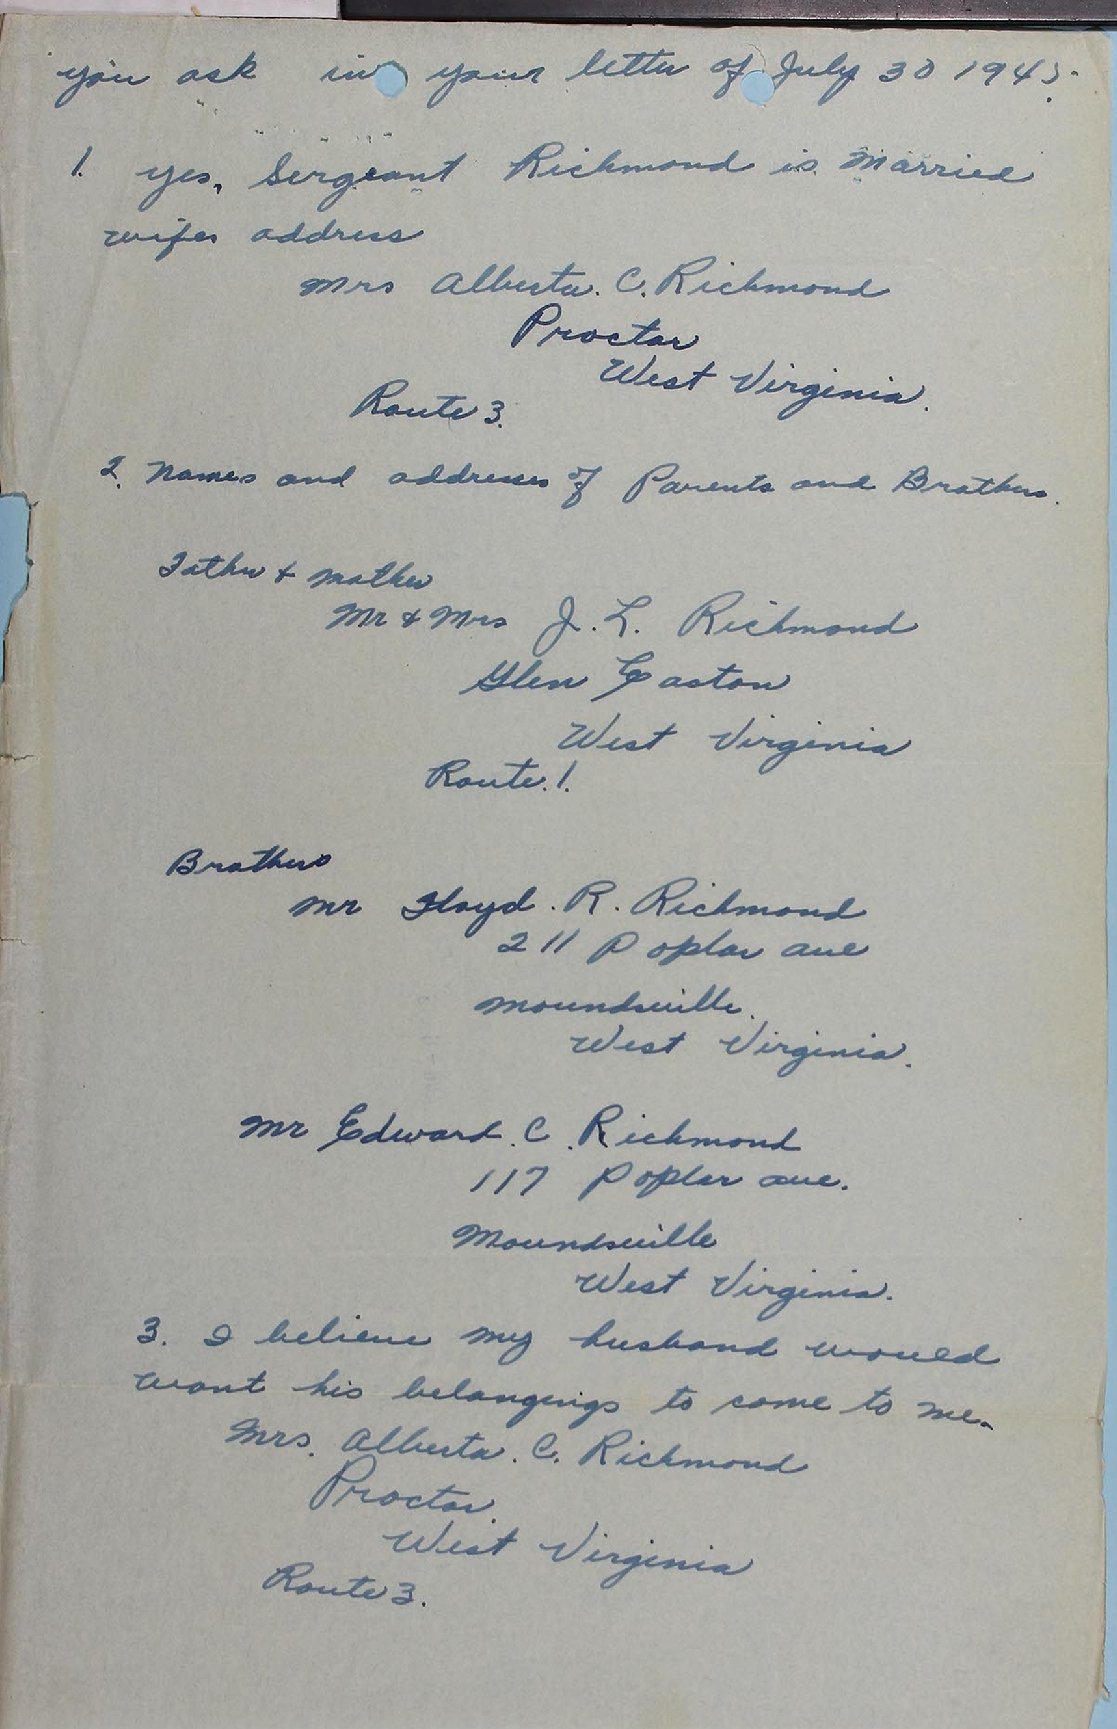 you ask in your letter of July 30 1945.
1. yes, Sergeant Richmond is Married
wifes address
Mrs Alberta. C. Richmond
Proctor
West Virginia.
Route 3.
2. Names and addresses of Parents and Brothers.
Father & Mother
Mr & Mrs J. L. Richmond
Glen Easton
West Virginia
Route. 1.
Brothers
Mr Floyd. R. Richmond
211 Poplar ave
Moundsville.
West Virginia.
Mr Edward. C. Richmond
117 Poplar ave.
Moundsville
West Virginia.
3. I believe my husband would
want his belongings to come to me.
Mrs. Alberta. C. Richmond
Proctor.
West Virginia
Route 3.